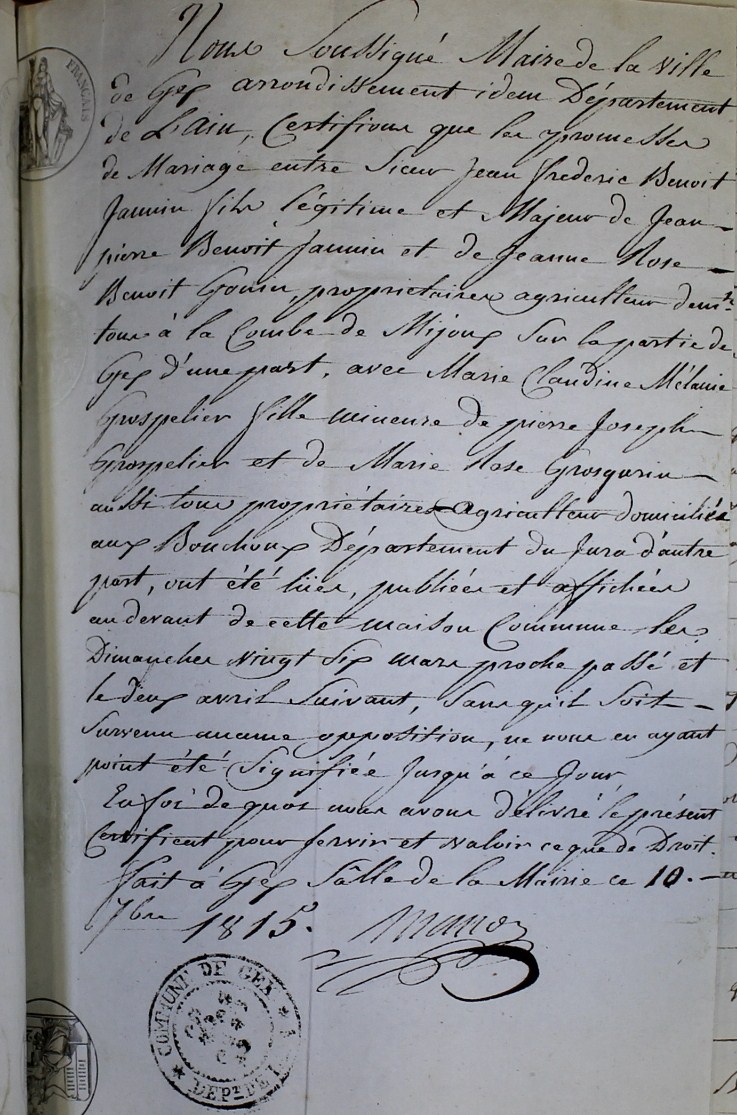 Nous Soussigné Maire de la ville
de Gex arrondissement idem Département
de L'ain, Certifions que les promesses
de Mariage entre Sieur Jean frederic Benoit
Jannin fils légitime et Majeur de Jean-
pierre Benoit Jannin et de Jeanne Rose
Benoit Gonin, propriétaires agriculteur dem.ts
tous à la Combe de Mijoux Sur la partie de
Gex d'une part, avec Marie Claudine Mélanie
Grospelier fille mineure de pierre Joseph
Grospelier et de Marie Rose Grosgurin
aussi tous propriétaires agriculteur domiciliés
aux Bouchoux Département du Jura d'autre
part, ont été lües, publiées et affichées
au devant de cette maison Commune les
Dimanches vingt Six mars proche passé et
le deux avril Suivant, Sans qu'il Soit
Survenu aucune opposition, ne nous en ayant
point été Signifiée Jusqu'à ce Jour
En foi de quoi nous avons délivré le présent
Certificat pour servir et valoir ce que de Droit.
fait à Gex Sâlle de la Mairie ce 10.
7bre 1815.
FRANÇAIS
COMMUNE DE GEX
DEPT DE L'